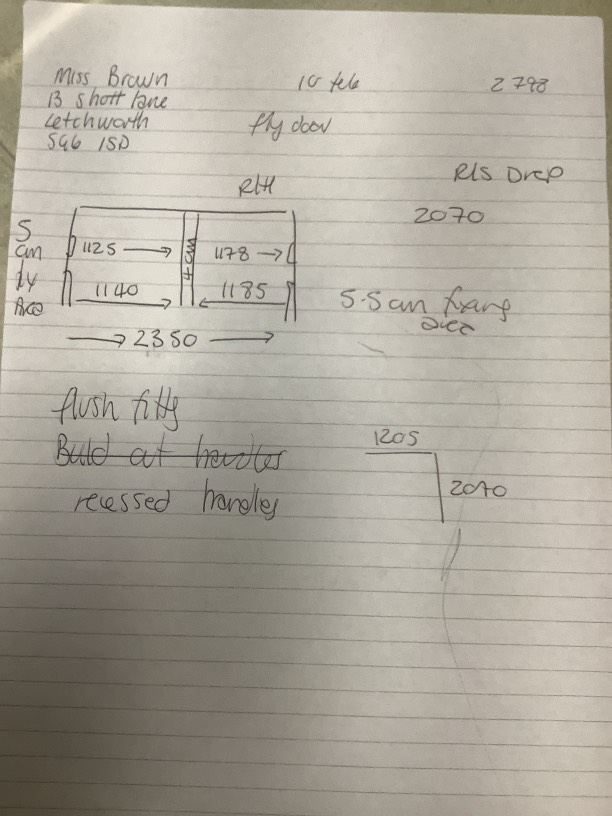 Miss Brown 10 feb 2798
13 Shott lane
Letchworth fly door
SG6 1SD
RHS Drop
RH
2070
5
cm
1125 → 4cm 1178 →
1140 1185
5.5 cm fixing
area
→ 2350 →
flush fitty
Build out handles
1205
recessed handles 2070